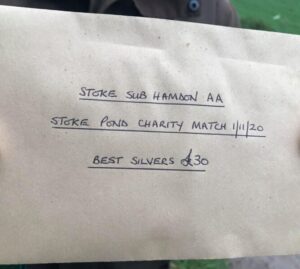 STOKE SUB HAMDON AA
STOKE POND CHARITY MATCH 1/11/20
BEST SILVERS £30